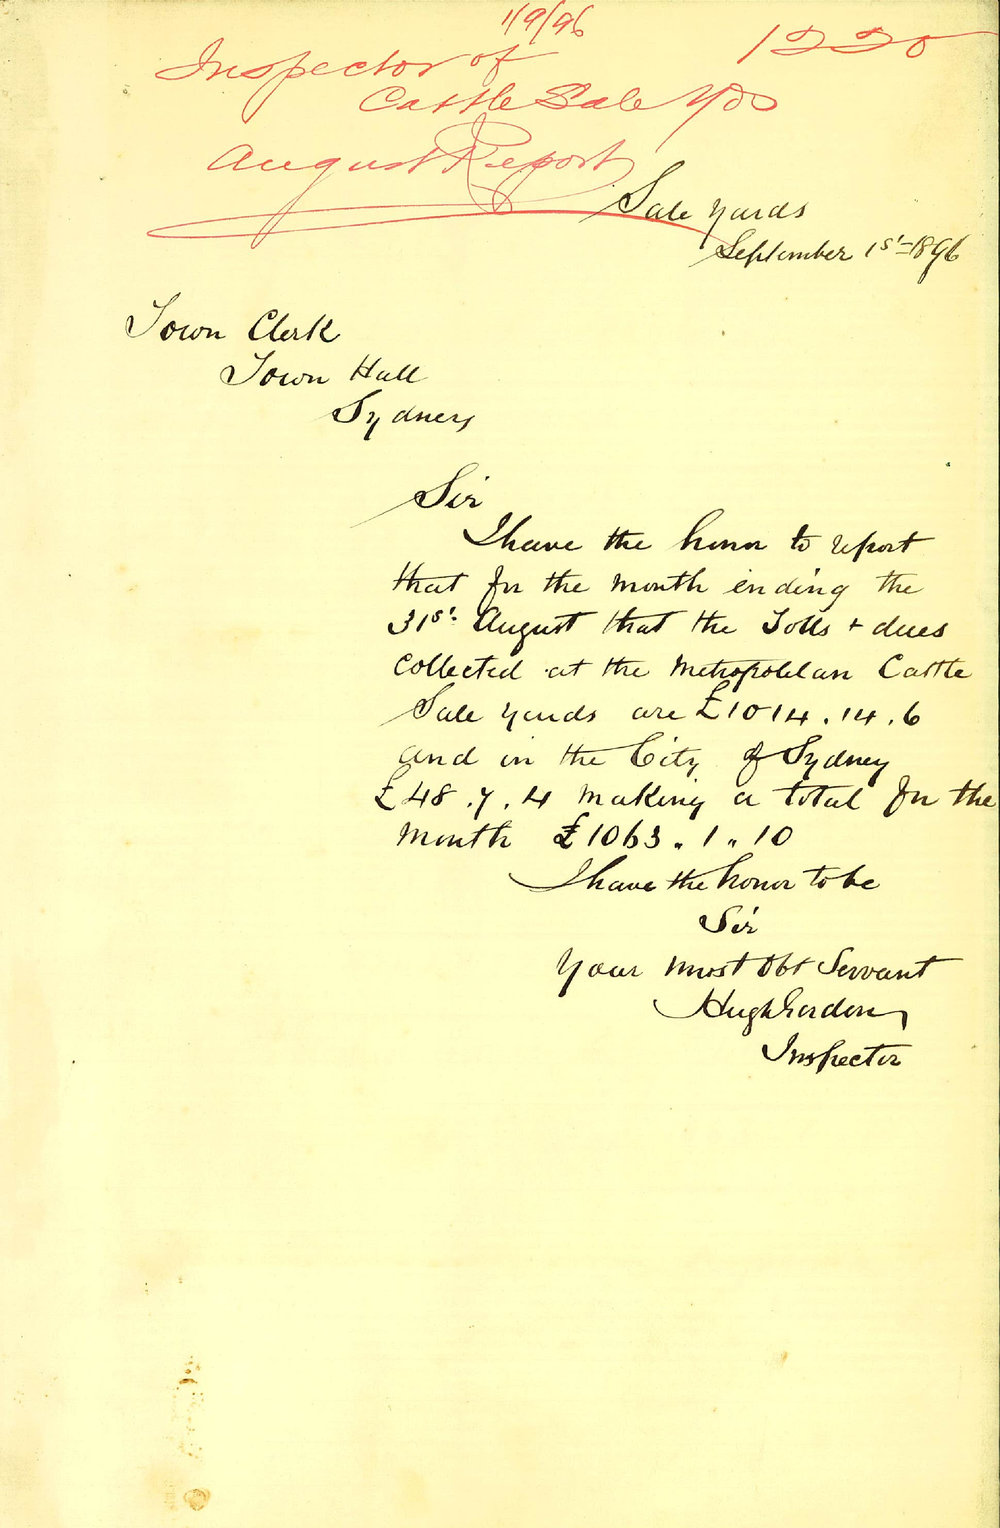 1/9/96
1220
Inspector of
Cattle Sale Yds
August Report
Sale Yards
September 1st-1896
Town Clerk
Town Hall
Sydney
Sir
I have the honor to report
that for the month ending the
31st. August that the Tolls + dues
collected at the Metropolitan Cattle
Sale Yards are £1014.14.6
and in the City of Sydney
£48.7.4 making a total for the
month £1063.1.10
I have the honor to be
Sir
Your most Obt Servant
Hugh Gordon
Inspector